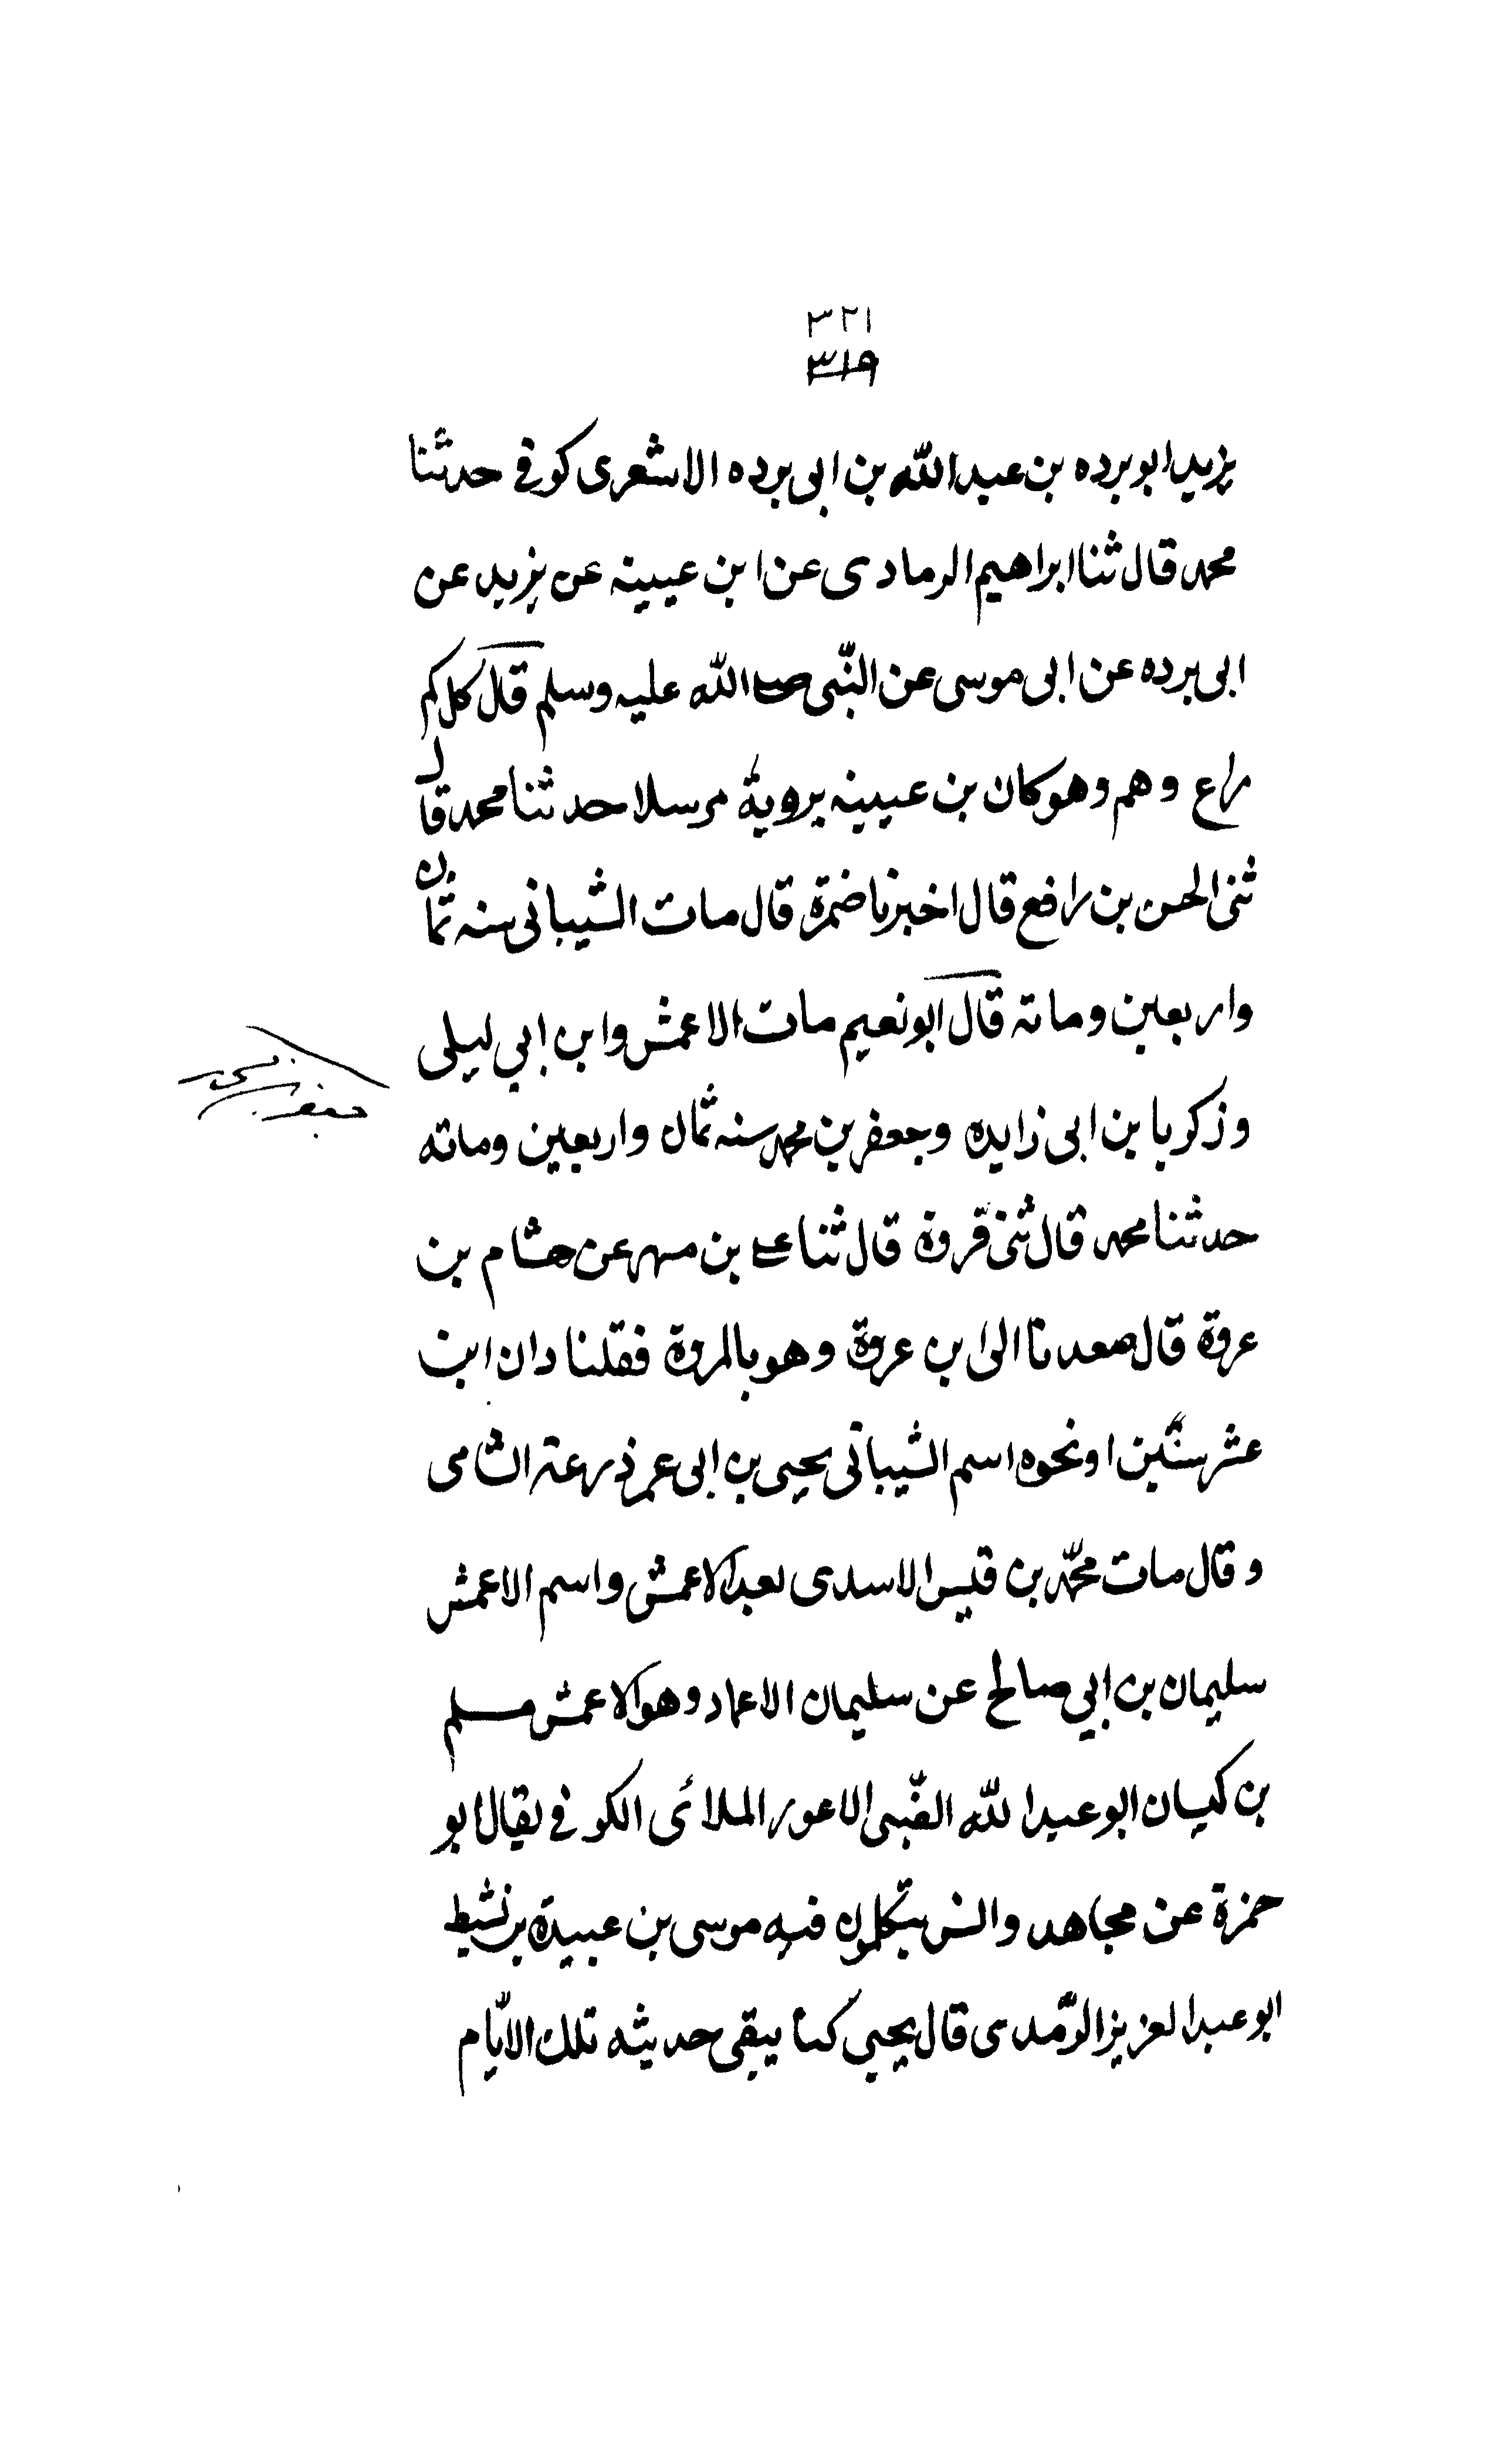 ٣٢١
٣١٩
يزيد ابو برده بن عبد الله بن ابى برده الاشعرى كوفى حدثنا
محمد قال ثنا ابراهيم الرمادى عن ابن عيينه عن يزيد عن
ابى برده عن ابى موسى عن النّبى صلى الله عليه وسلم قال كلكم
راع وهم وهو كان بن عيينه يرويه مرسلا حدثنا محمد قال
ثنى الحسن بن رافع قال اخبرنا ضمرة قال مات الشيبانى سنه ثمان
واربعين ومائه قال ابو نعيم مات الاعمش وابن ابي ليلى
وزكريا بن ابى زايده وجعفر بن محمد سنه ثمان واربعين ومائه
حدثنا محمد قال ثنى فروة قال ثنا على بن مسهر عن هشام بن
عروة قال صعدنا الى ابن عروة وهو بالمروة فقلنا دان ابن
عشر سنين او نحوه اسم الشيبانى يحيى بن ابى عمر ذرعة الشامى
وقال مات محمّد بن قيس الاسدى بعد الاعمش واسم الاعمش
سليمان بن ابي صالح عن سليمان الاعماد وهو الاعمش مسلم
بن كيسان ابو عبد الله الضّبى الاعور الملائى الكوفى يقال ابو
حمزة عن مجاهد وانس يتكلمون فيه موسى بن عبيدة بن نشيط
ابو عبد العزيز الرّمدى قال يحيى كنا يبقى حديثه تلك الايّام
جعفر بن محمد